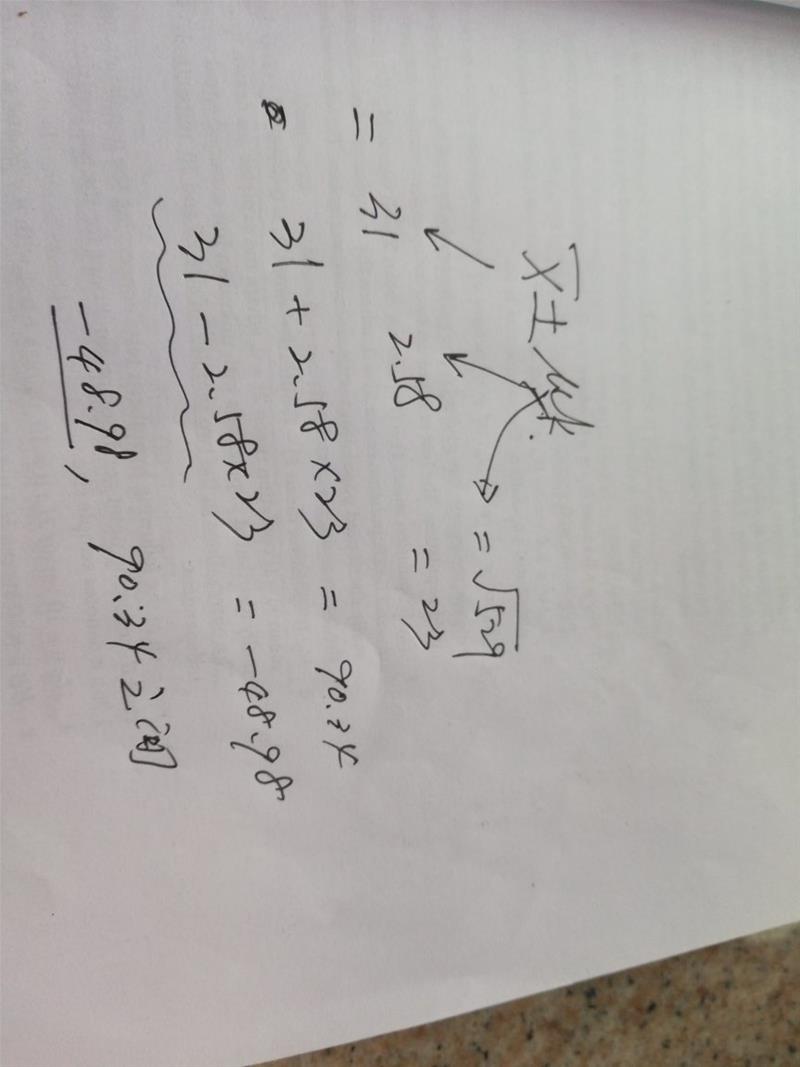 = √529
= 31 2.58 = 23
31 + 2.58 × 23 = 90.34
31 - 2.58 × 23 = -48.98
-48.98, 90.34之间